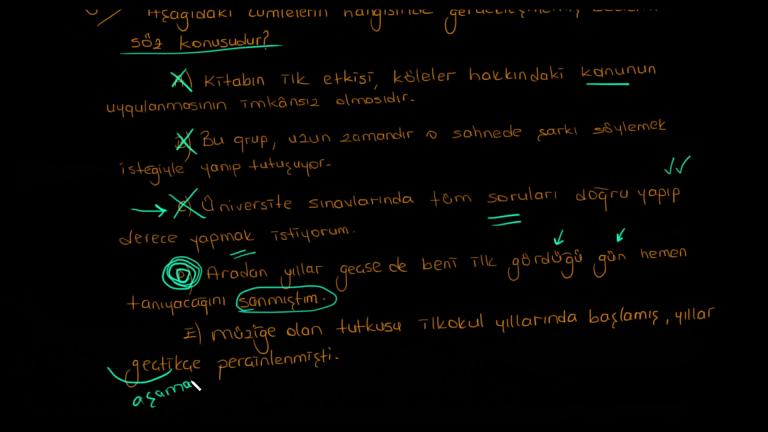 Aşağıdaki cümlelerin hangisinde
söz konusudur?
A) Kitabın ilk etkisi, köleler hakkındaki kanunun
uygulanmasının imkânsız olmasıdır.
B) Bu grup, uzun zamandır o sahnede şarkı söylemek
isteğiyle yanıp tutuşuyor.
C) Üniversite sınavlarında tüm soruları doğru yapıp
derece yapmak istiyorum.
D) Aradan yıllar geçse de beni ilk gördüğü gün hemen
tanıyacağını sanmıştım.
E) Müziğe olan tutkusu ilkokul yıllarında başlamış, yıllar
geçtikçe perçinlenmişti.
aşama